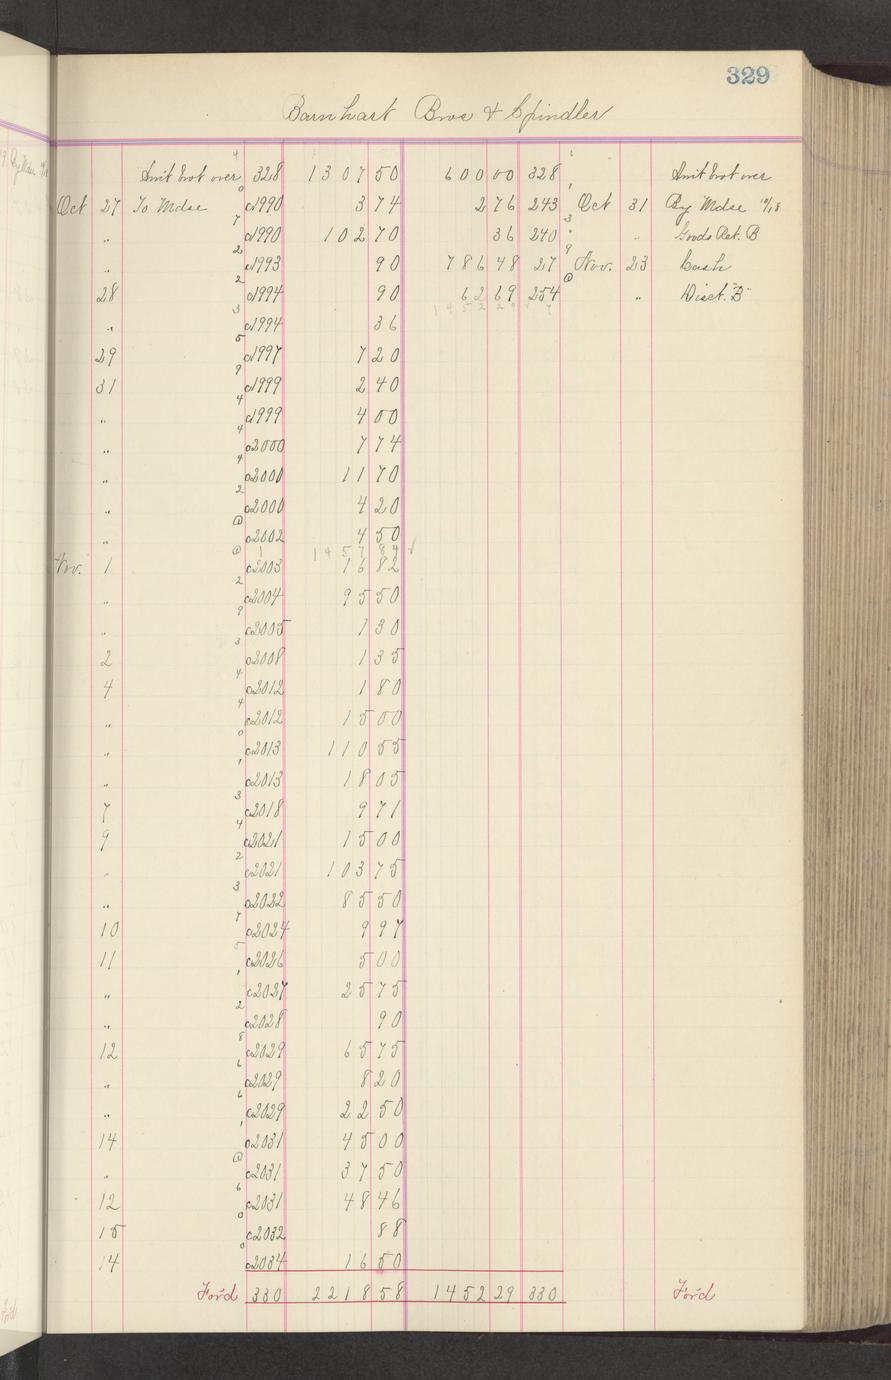 329
Barnhart Bros & Spindler
Amt brot over 4 328 1307 50 600 00 328 Amt brot over
Oct 27 To Mdse 0 c1990 3 74 2 76 243 1 Oct 31 By Mdse 10/18
" 7 c1990 102 70 36 240 3 " Goods Ret. B
" 2 c1993 90 786 48 27 9 Nov. 23 Cash
28 2 c1994 90 62 69 254 @ " Disct. "B"
1452 29
" 3 c1994 36
29 5 c1997 7 20
31 9 c1999 2 40
" 4 c1999 4 00
" 4 c2000 7 74
" 4 c2000 11 70
" 2 c2000 4 20
" @ c2002 4 50
1457 84 √
Nov. 1 @ c2003 16 82
" 2 c2004 95 50
" 9 c2005 1 30
2 3 c2008 1 35
4 4 c2012 1 80
" 4 c2012 15 00
" 0 c2013 110 55
" 1 c2013 18 05
7 3 c2018 9 71
9 4 c2021 15 00
" 2 c2021 103 75
" 3 c2022 85 50
10 7 c2024 9 97
11 5 c2026 5 00
" 1 c2027 25 75
" 2 c2028 90
12 8 c2029 65 75
" 6 c2029 8 20
" 6 c2029 22 50
14 1 c2031 45 00
" @ c2031 37 50
12 6 c2031 48 46
15 0 c2032 88
14 0 c2034 16 50
For'd 330 2218 58 1452 29 330 For'd